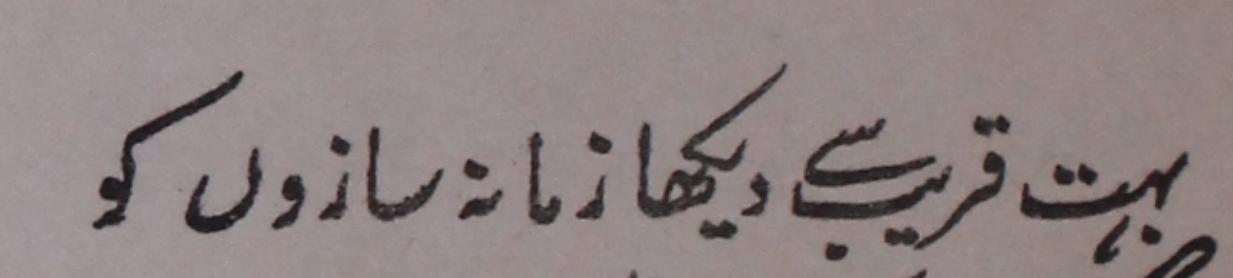 بہت قریب سے دیکھا زمانہ سازوں کو